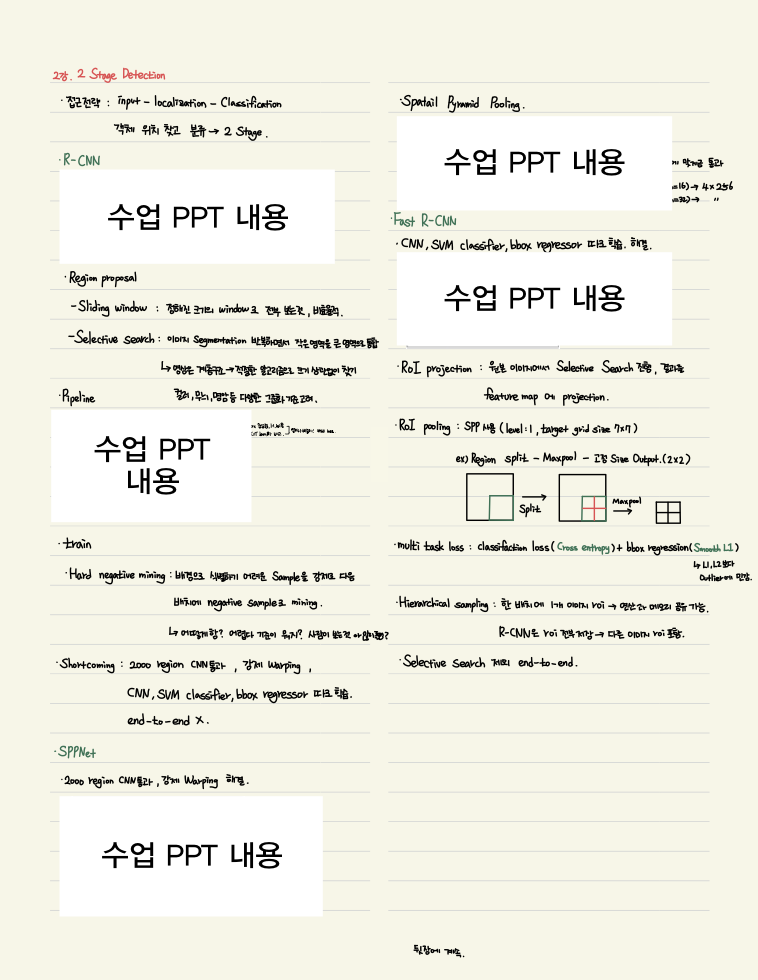 2강. 2 Stage Detection
· 접근전략 : input - localization - Classification
객체 위치 찾고 분류 → 2 Stage.
· R-CNN
수업 PPT 내용
· Region proposal
- Sliding window : 정해진 크기의 window로 전부 보는것, 비효율적.
- Selective search : 이미지 Segmentation 반복하면서 작은영역을 큰 영역으로 통합
↳ 영상은 계층구조 → 적절한 알고리즘으로 크기 상관없이 찾기
컬러, 무늬, 명암 등 다양한 그룹화 기준 고려.
· Pipeline
수업 PPT
내용
· train
· Hard negative mining : 배경으로 식별하기 어려운 Sample을 강제로 다음
배치에 negative sample로 mining.
↳ 어떻게함? 어렵다 기준이 뭐지? 사람이 보는것 아
· Shortcoming : 2000 region CNN통과 , 강제 Warping ,
CNN, SVM classifier, bbox regressor 따로 학습.
end-to-end X.
· SPPNet
· 2000 region CNN통과, 강제 Warping 해결.
수업 PPT 내용
· Spatail Pyramid Pooling.
수업 PPT 내용
통과
=16) → 4×256
=32) → "
· Fast R-CNN
· CNN, SVM classifier, bbox regressor 따로 학습. 해결.
수업 PPT 내용
· RoI projection : 원본 이미지에서 Selective Search 진행, 결과를
feature map 에 projection.
· RoI pooling : SPP 사용 (level:1, target grid size 7×7)
ex) Region split - Maxpool - 고정 Size Output. (2×2)
Split
Maxpool
· multi task loss : classifaction loss (Cross entropy) + bbox regression (Smooth L1)
↳ L1, L2보다
Outlier에 민감.
· Hierarchical sampling : 한 배치에 1개 이미지 roi → 연산과 메모리 공유 가능.
R-CNN은 roi 전부저장 → 다른 이미지 roi 포함.
· Selective Search 제외 end-to-end.
뒷장에 계속.